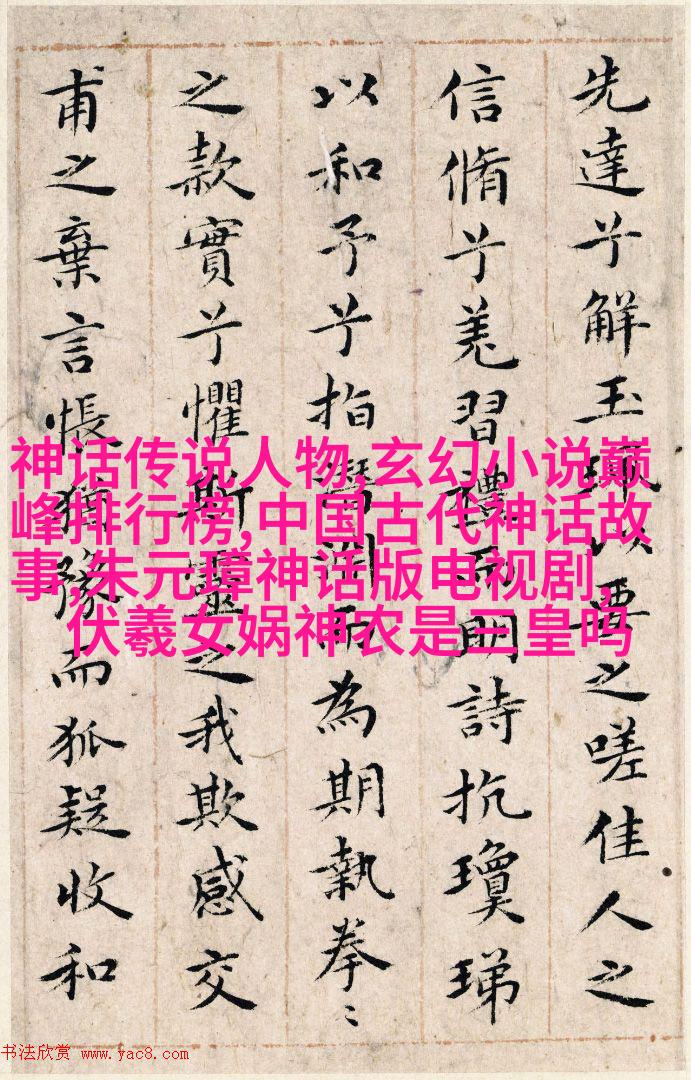 先達兮解玉珮以要之嗟佳人之
信脩兮羌習禮而明詩抗瓊珶
以和予兮指潛淵而為期執拳〻
之款實兮懼斯靈之我欺感交
甫之棄言悵猶豫而狐疑收和
神话传说人物,玄幻小说巅
峰排行榜,中国古代神话故
事,朱元璋神话版电视剧,
伏羲女娲神农是三皇吗
书法欣赏 www.yac8.com